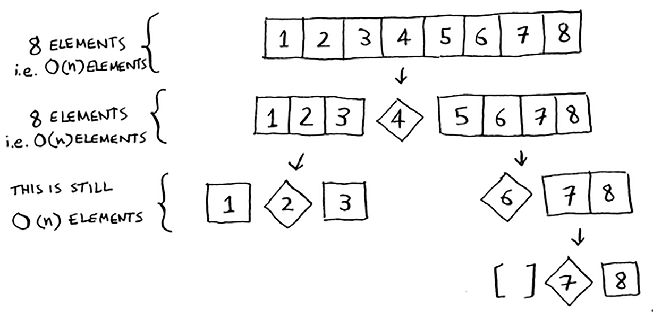 8 ELEMENTS
i.e. O(n) ELEMENTS
1 2 3 4 5 6 7 8
8 ELEMENTS
i.e. O(n) ELEMENTS
1 2 3 4 5 6 7 8
THIS IS STILL
O(n) ELEMENTS
1 2 3 6 7 8
[ ] 7 8